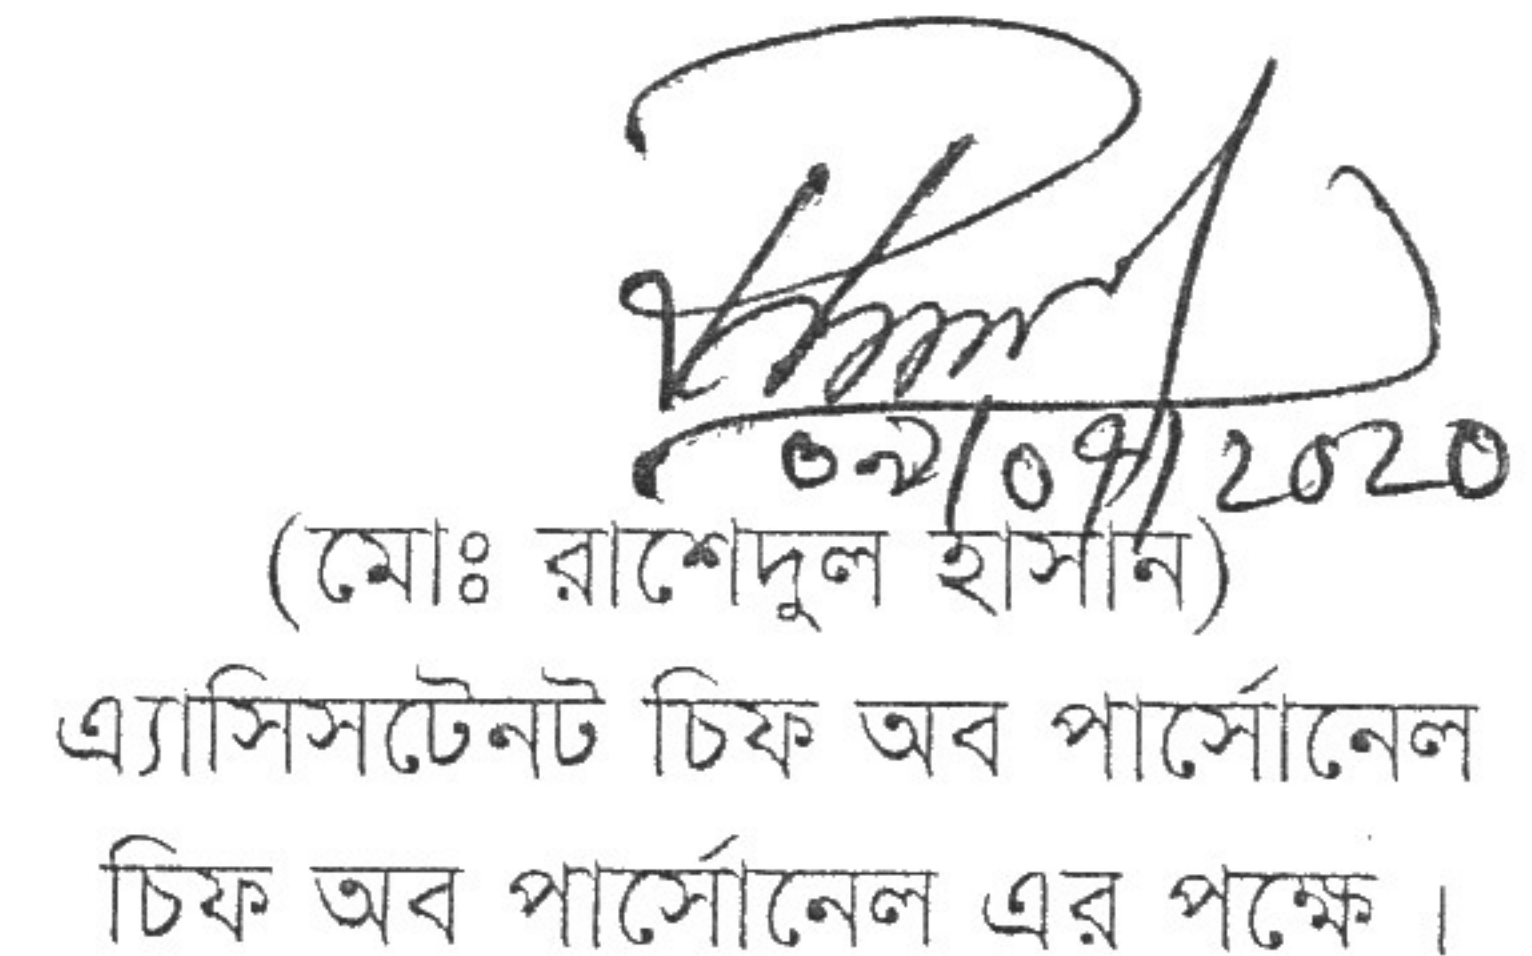 ০৯/০৭/২০২০
(মোঃ রাশেদুল হাসান)
এ্যাসিসটেনট চিফ অব পার্সোনেল
চিফ অব পার্সোনেল এর পক্ষে ।